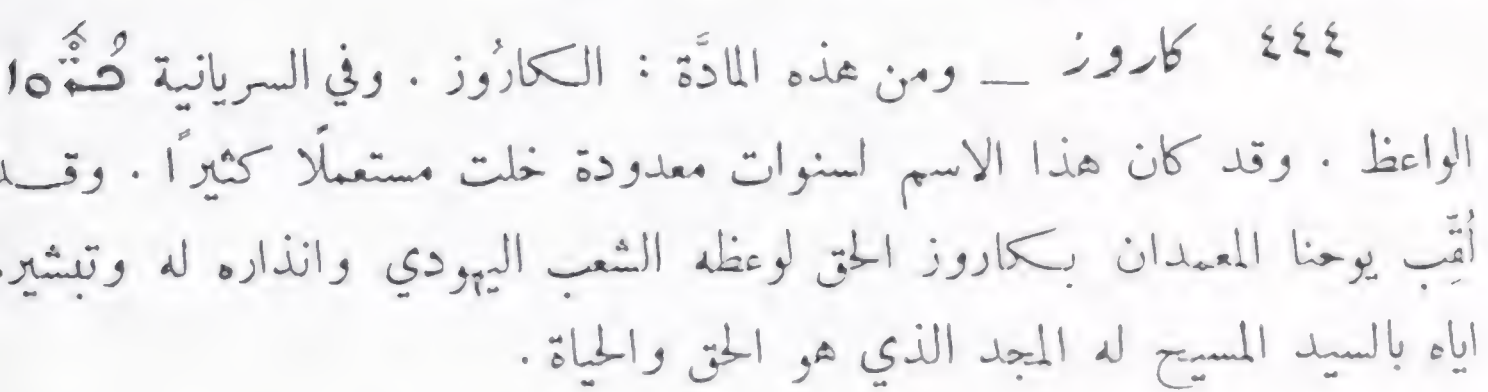 ٤٤٤ كاروز — ومن هذه المادَّة : الكارُوز . وفي السريانية
الواعظ . وقد كان هذا الاسم لسنوات معدودة خلت مستعملًا كثيرًا . وقد
لُقِّب يوحنا المعمدان بكاروز الحق لوعظه الشعب اليهودي وانذاره له وتبشيره
اياه بالسيد المسيح له المجد الذي هو الحق والحياة .